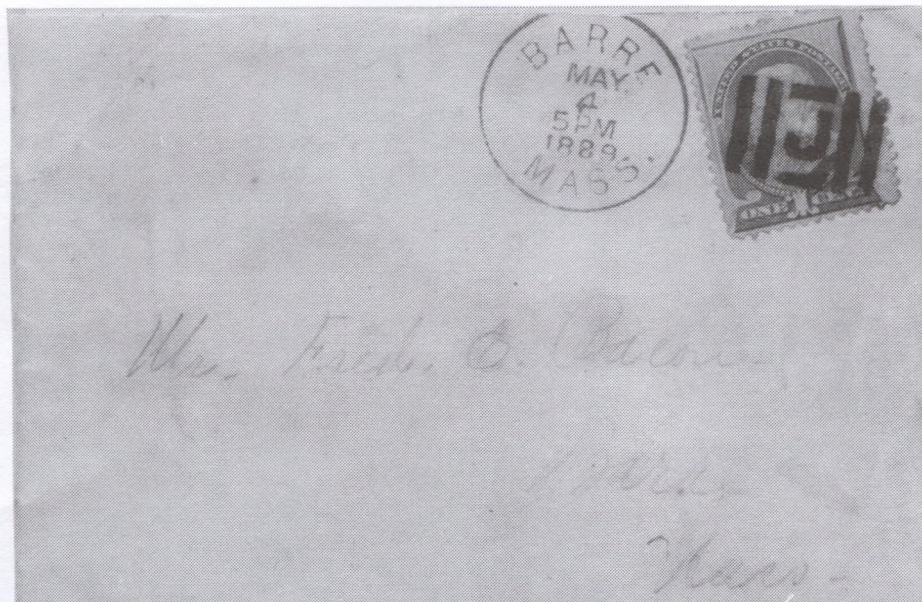 BARRE
MAY
4
5PM
1889
MASS.
UNITED STATES POSTAGE
ONE 1 ONE
Mr. Fred. E. Bacon
Barre
Mass-